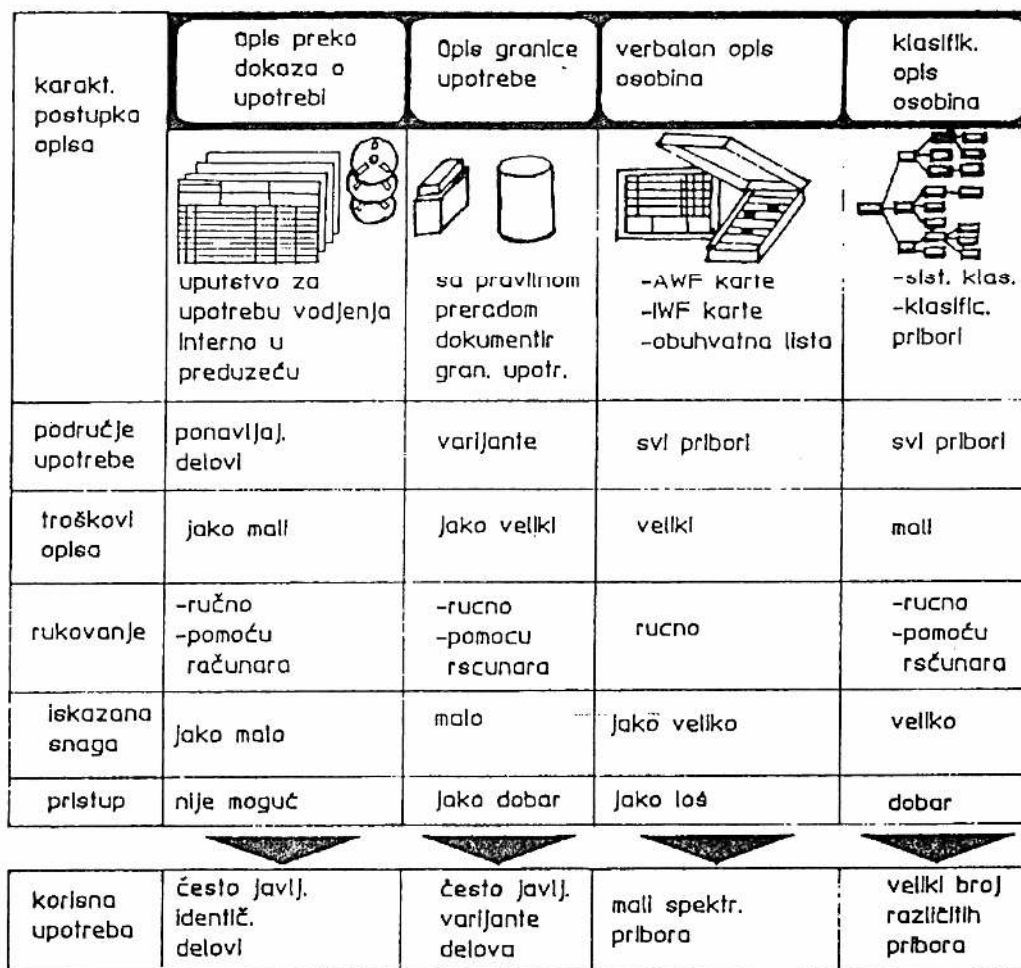 karakt.
postupka
opisa
Opis preko
dokaza o
upotrebi
Opis granice
upotrebe
verbalan opis
osobina
klasifik.
opis
osobina
uputstvo za
upotrebu vodjenja
interno u
preduzeću
sa pravilnom
preradom
dokumentir
gran. upotr.
-AWF karte
-IWF karte
-obuhvatna lista
-sist. klas.
-klasific.
pribori
područje
upotrebe
ponavljaj.
delovi
varijante
svi pribori
svi pribori
troškovi
opisa
jako mali
jako veliki
veliki
mali
rukovanje
-ručno
-pomoću
računara
-rucno
-pomocu
rscunara
rucno
-rucno
-pomoću
rsčunara
iskazana
snaga
jako malo
malo
jako veliko
veliko
pristup
nije moguć
jako dobar
jako loš
dobar
korisna
upotreba
često javlj.
identič.
delovi
često javlj.
varijante
delova
mali spektr.
pribora
veliki broj
različitih
pribora